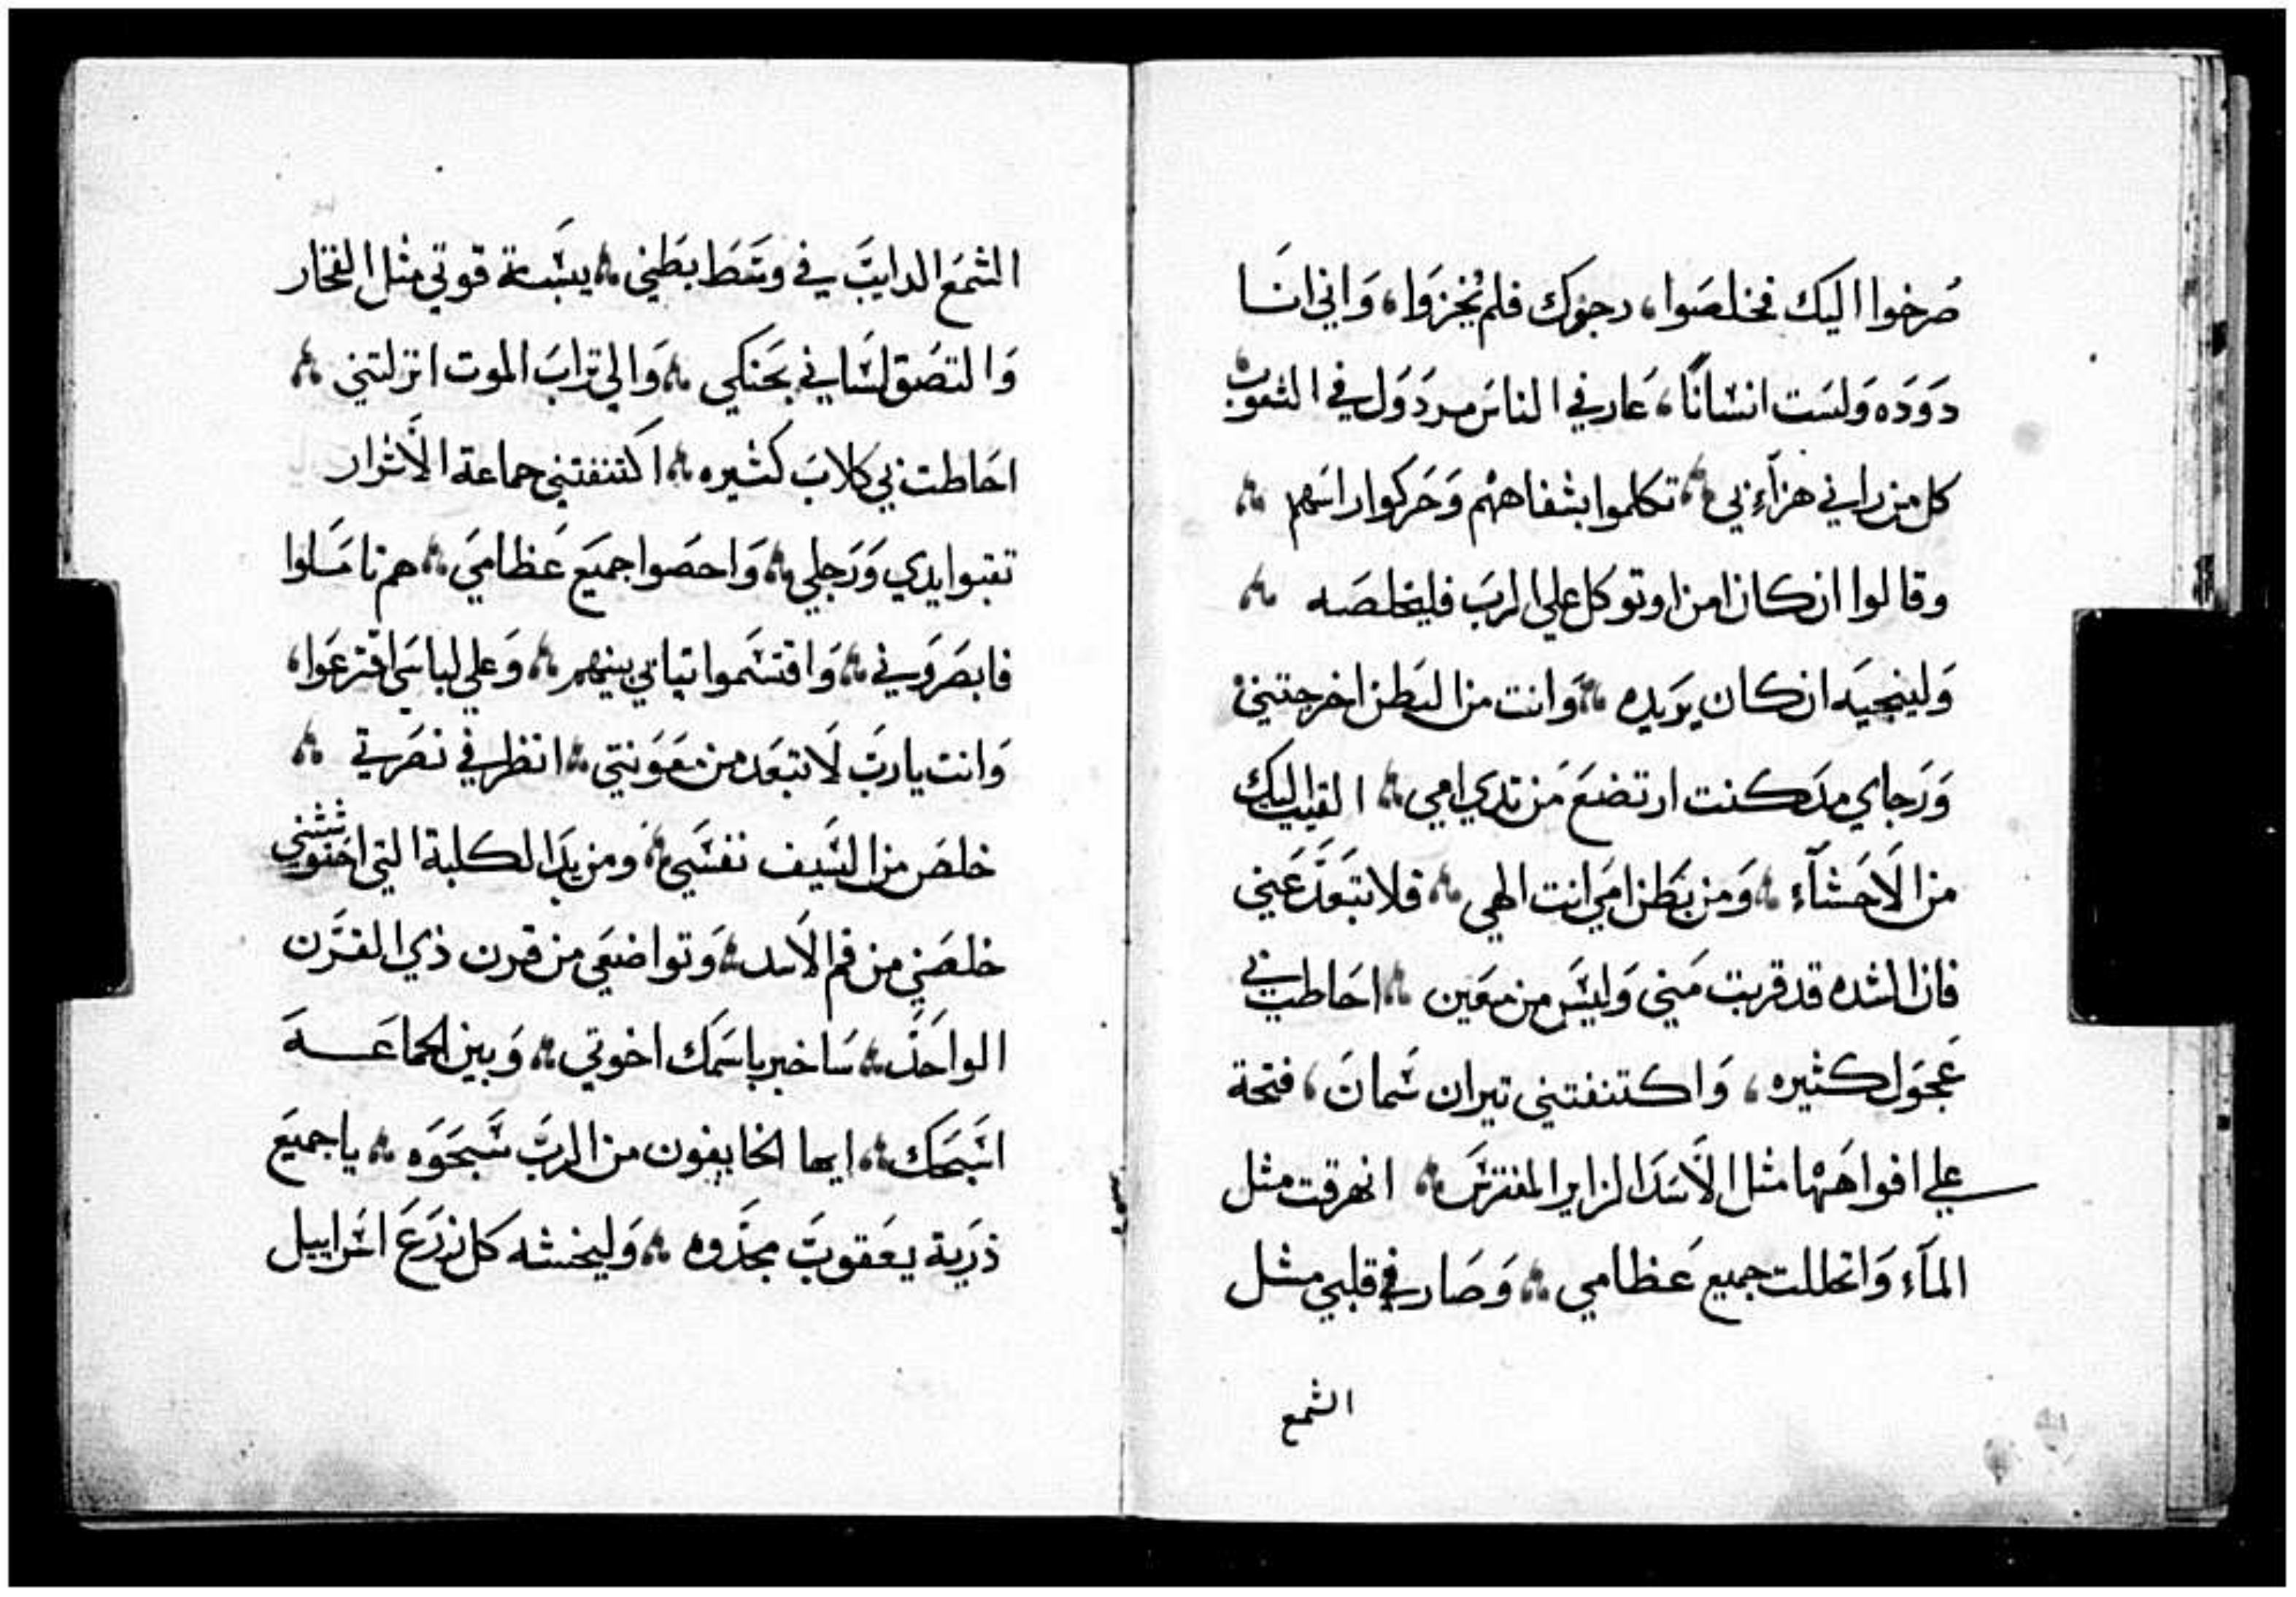 صرخوا اليك فخلصوا، رجوك فلم يخزوا، واني انا
دوده ولست انسانًا، عار في الناس مردول في الشعوب
كل من راني هزاء بي تكلموا بشفاههم وحركوا راسهم
وقالوا ان كان امن او توكل علي الرب فليخلصه
ولينجيه ان كان يريده وانت من البطن اخرجتني
ورجاي مد كنت ارتضع من تدي امي القيت اليك
من الأحشآء ومن بطن امي انت الهي فلا تبعد عني
فان الشده قد قربت مني وليس من معين احاطت بي
عجول كثيره، واكتنفتني تيران سمان، فتحة
علي افواهها مثل الأسد الزاير المفترس انهرقت مثل
المآء وانحللت جميع عظامي وصار في قلبي مثل
الشمع
الشمع الدايب في وسط بطني يبسة قوتي مثل الفخار
والتصق لساني بحنكي والي تراب الموت انزلتني
احاطت بي كلاب كثيره اكتنفتني جماعة الأشرار
تقبوا يدي ورجلي واحصوا جميع عظامي هم تاملوا
فابصروني واقتسموا تيابي بينهم وعلي لباسي اقترعوا،
وانت يا رب لا تبعد من معونتي انظر في نصرتي
خلص من السيف نفسي ومن يد الكلبة التي احتوشتني
خلصني من فم الاسد وتواضعي من قرن ذي القرن
الواحد ساخبر باسمك اخوتي وبين الجماعه
اسبحك ايها الخايفون من الرب سبحوه يا جميع
ذرية يعقوب مجدوه وليخشه كل زرع اسراييل